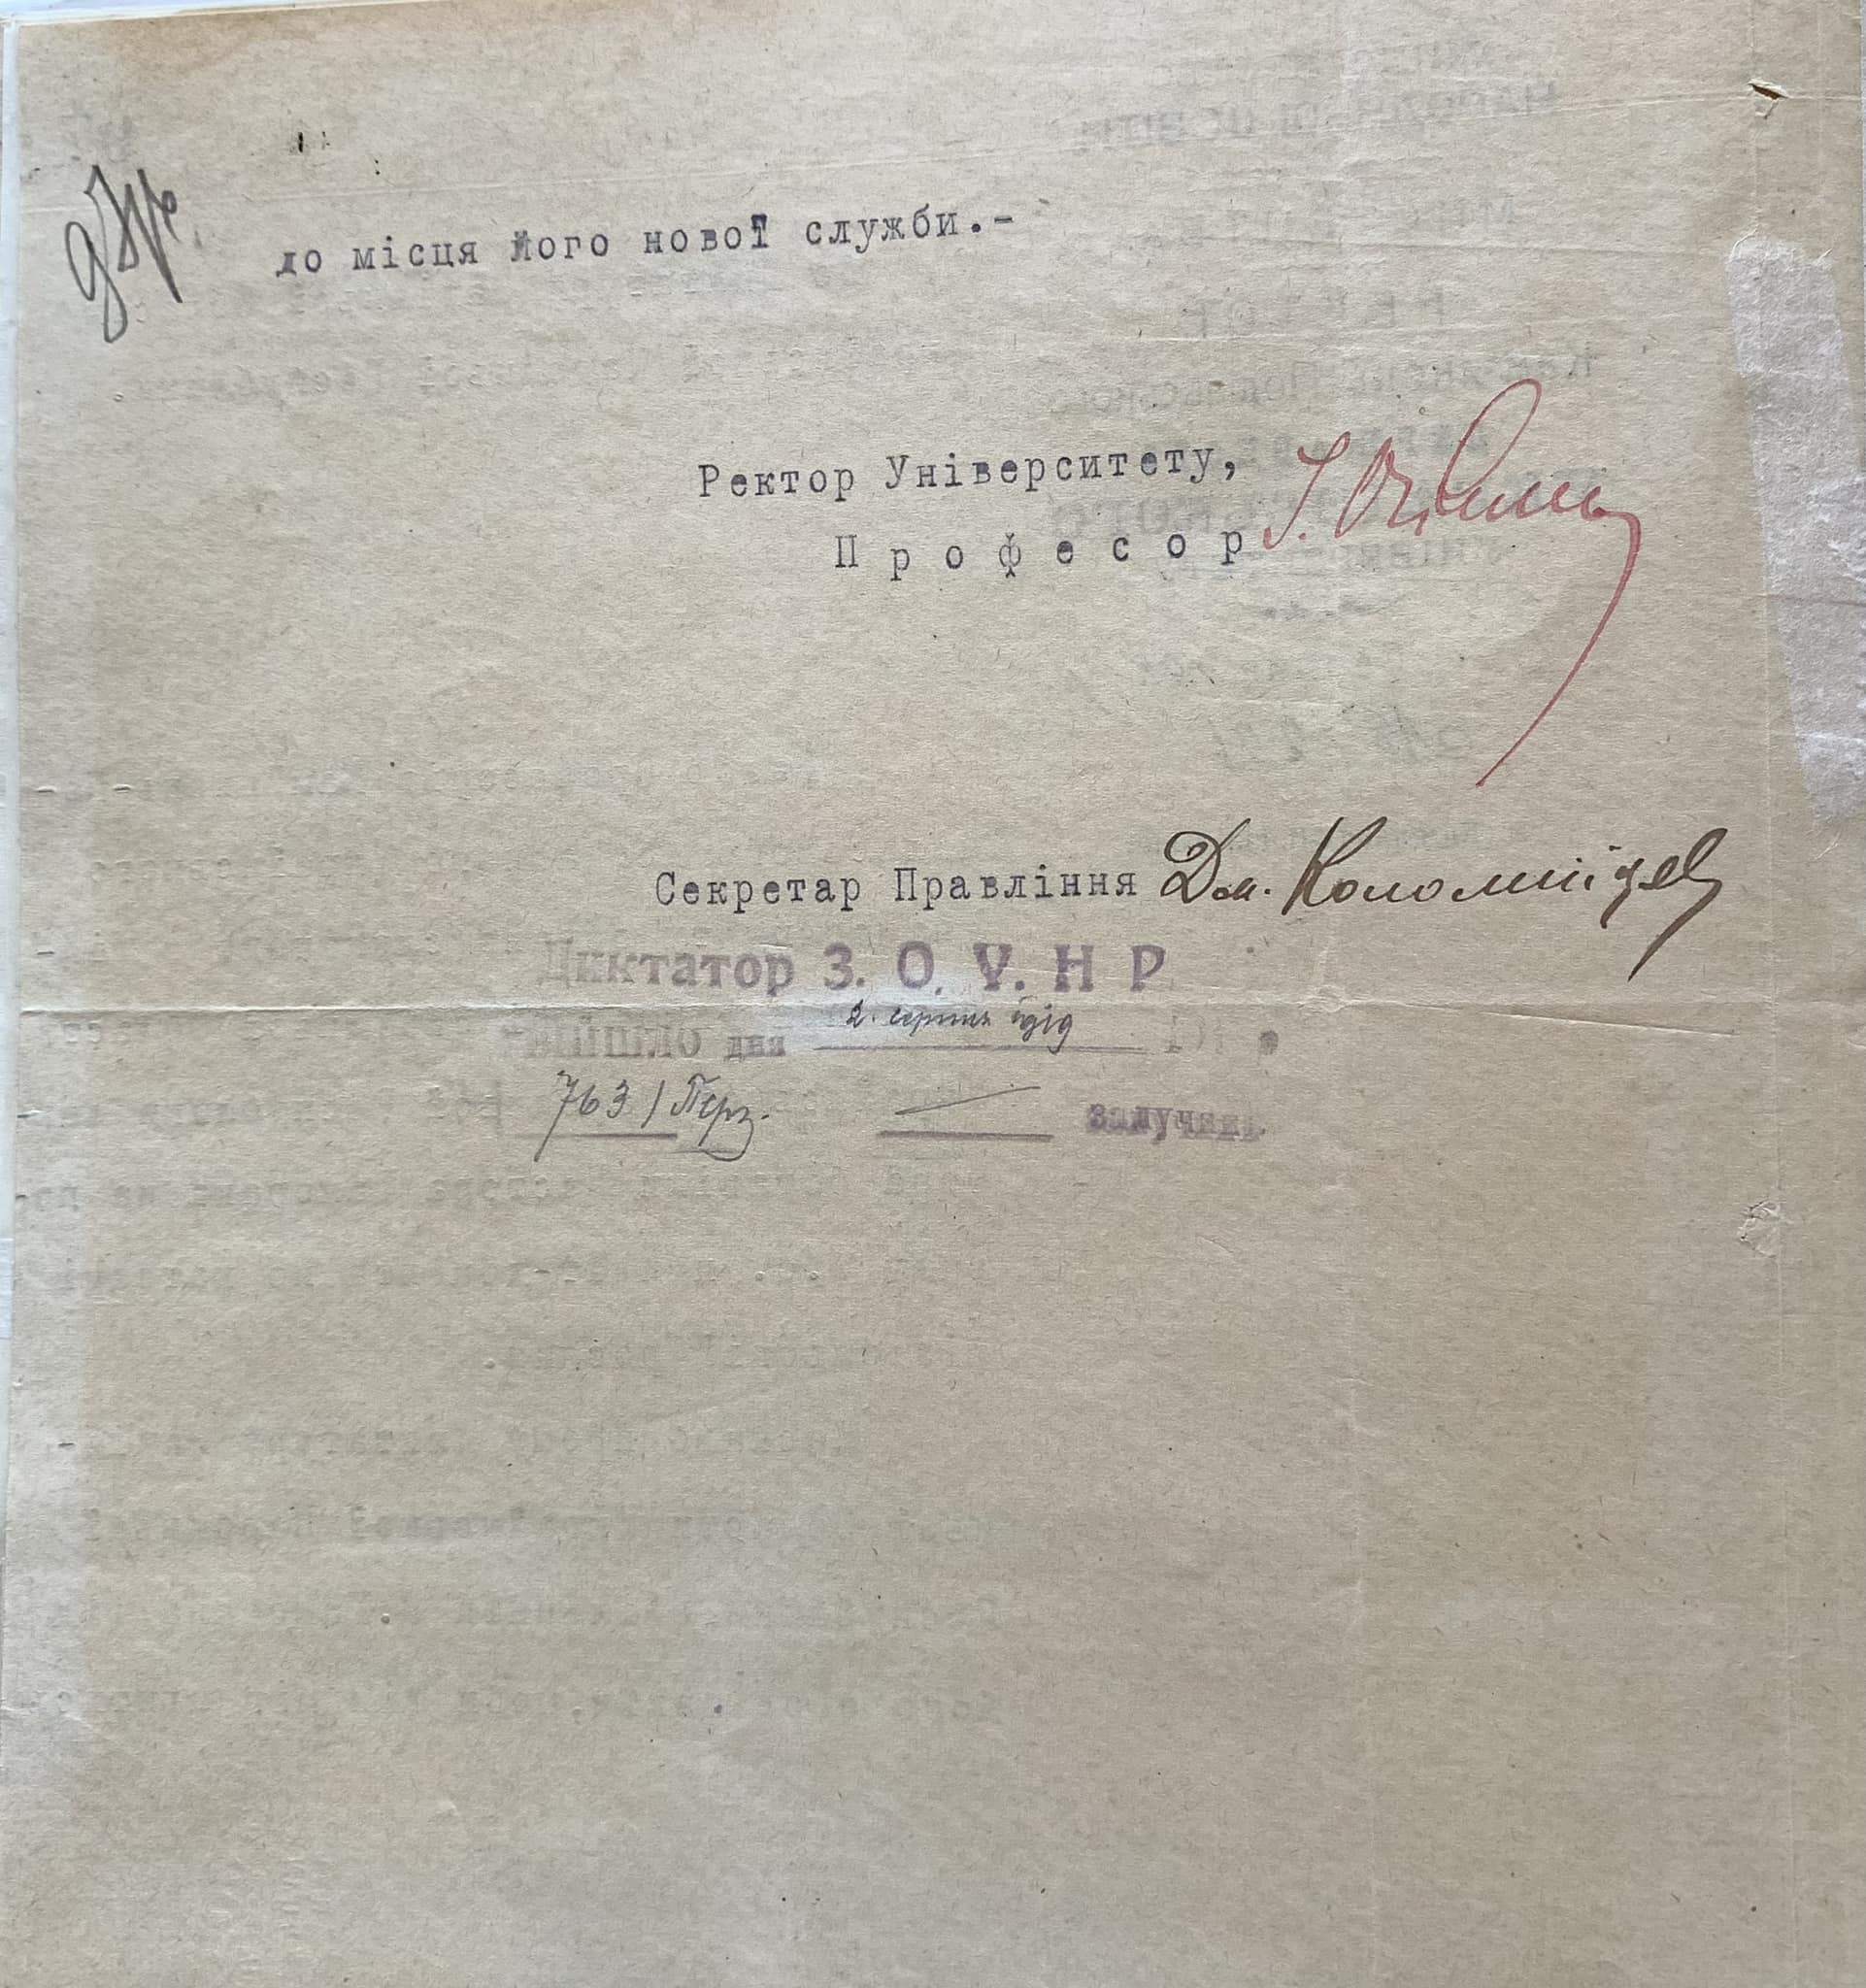 до місця його нової служби.-
Ректор Університету,
Професор І. Огієнко
Секретар Правління Дм. Коломійцев
Диктатор З. О. У. Н Р
Ввійшло дня 2. серпня 1919
763 / През.
залучник